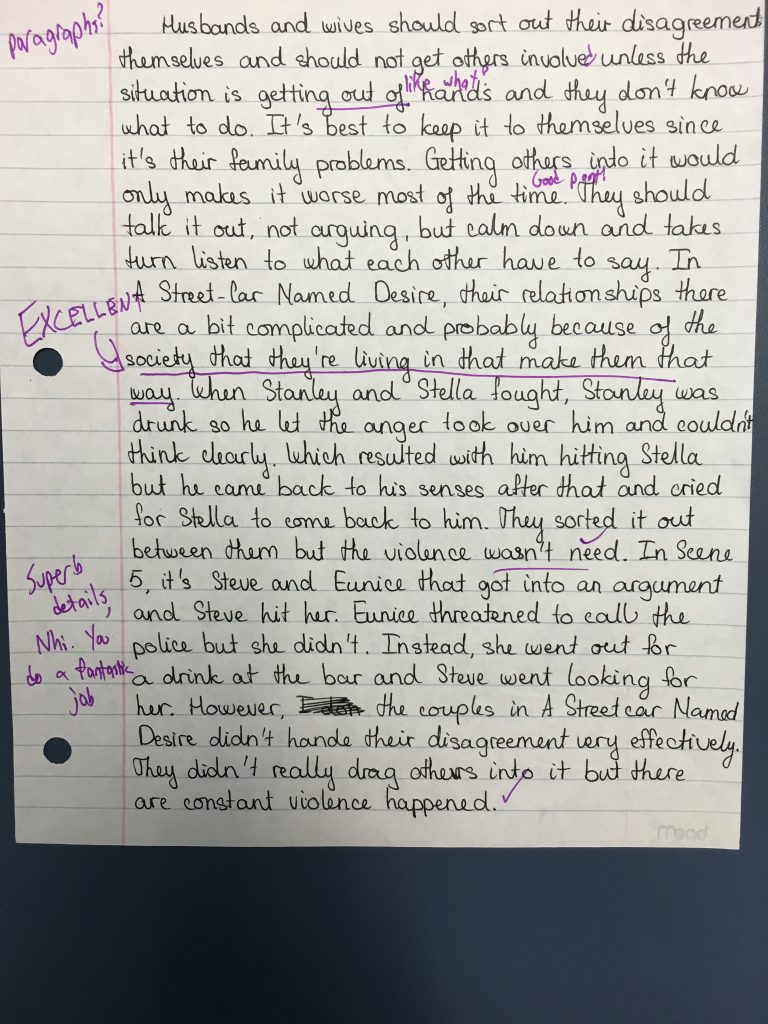 paragraphs?
Husbands and wives should sort out their disagreement
themselves and should not get others involved unless the
like what?
situation is getting out of hands and they don't know
what to do. It's best to keep it to themselves since
it's their family problems. Getting others into it would
Good point!
only makes it worse most of the time. They should
talk it out, not arguing, but calm down and takes
turn listen to what each other have to say. In
EXCELLENT
A Street-Car Named Desire, their relationships there
are a bit complicated and probably because of the
society that they're living in that make them that
way. When Stanley and Stella fought, Stanley was
drunk so he let the anger took over him and couldn't
think clearly. Which resulted with him hitting Stella
but he came back to his senses after that and cried
for Stella to come back to him. They sorted it out
between them but the violence wasn't need. In Scene
5, it's Steve and Eunice that got into an argument
and Steve hit her. Eunice threatened to call the
police but she didn't. Instead, she went out for
a drink at the bar and Steve went looking for
her. However, the couples in A Streetcar Named
Desire didn't hande their disagreement very effectively.
They didn't really drag others into it but there
are constant violence happened.
Superb
details,
Nhi. You
do a fantastic
job
Mead